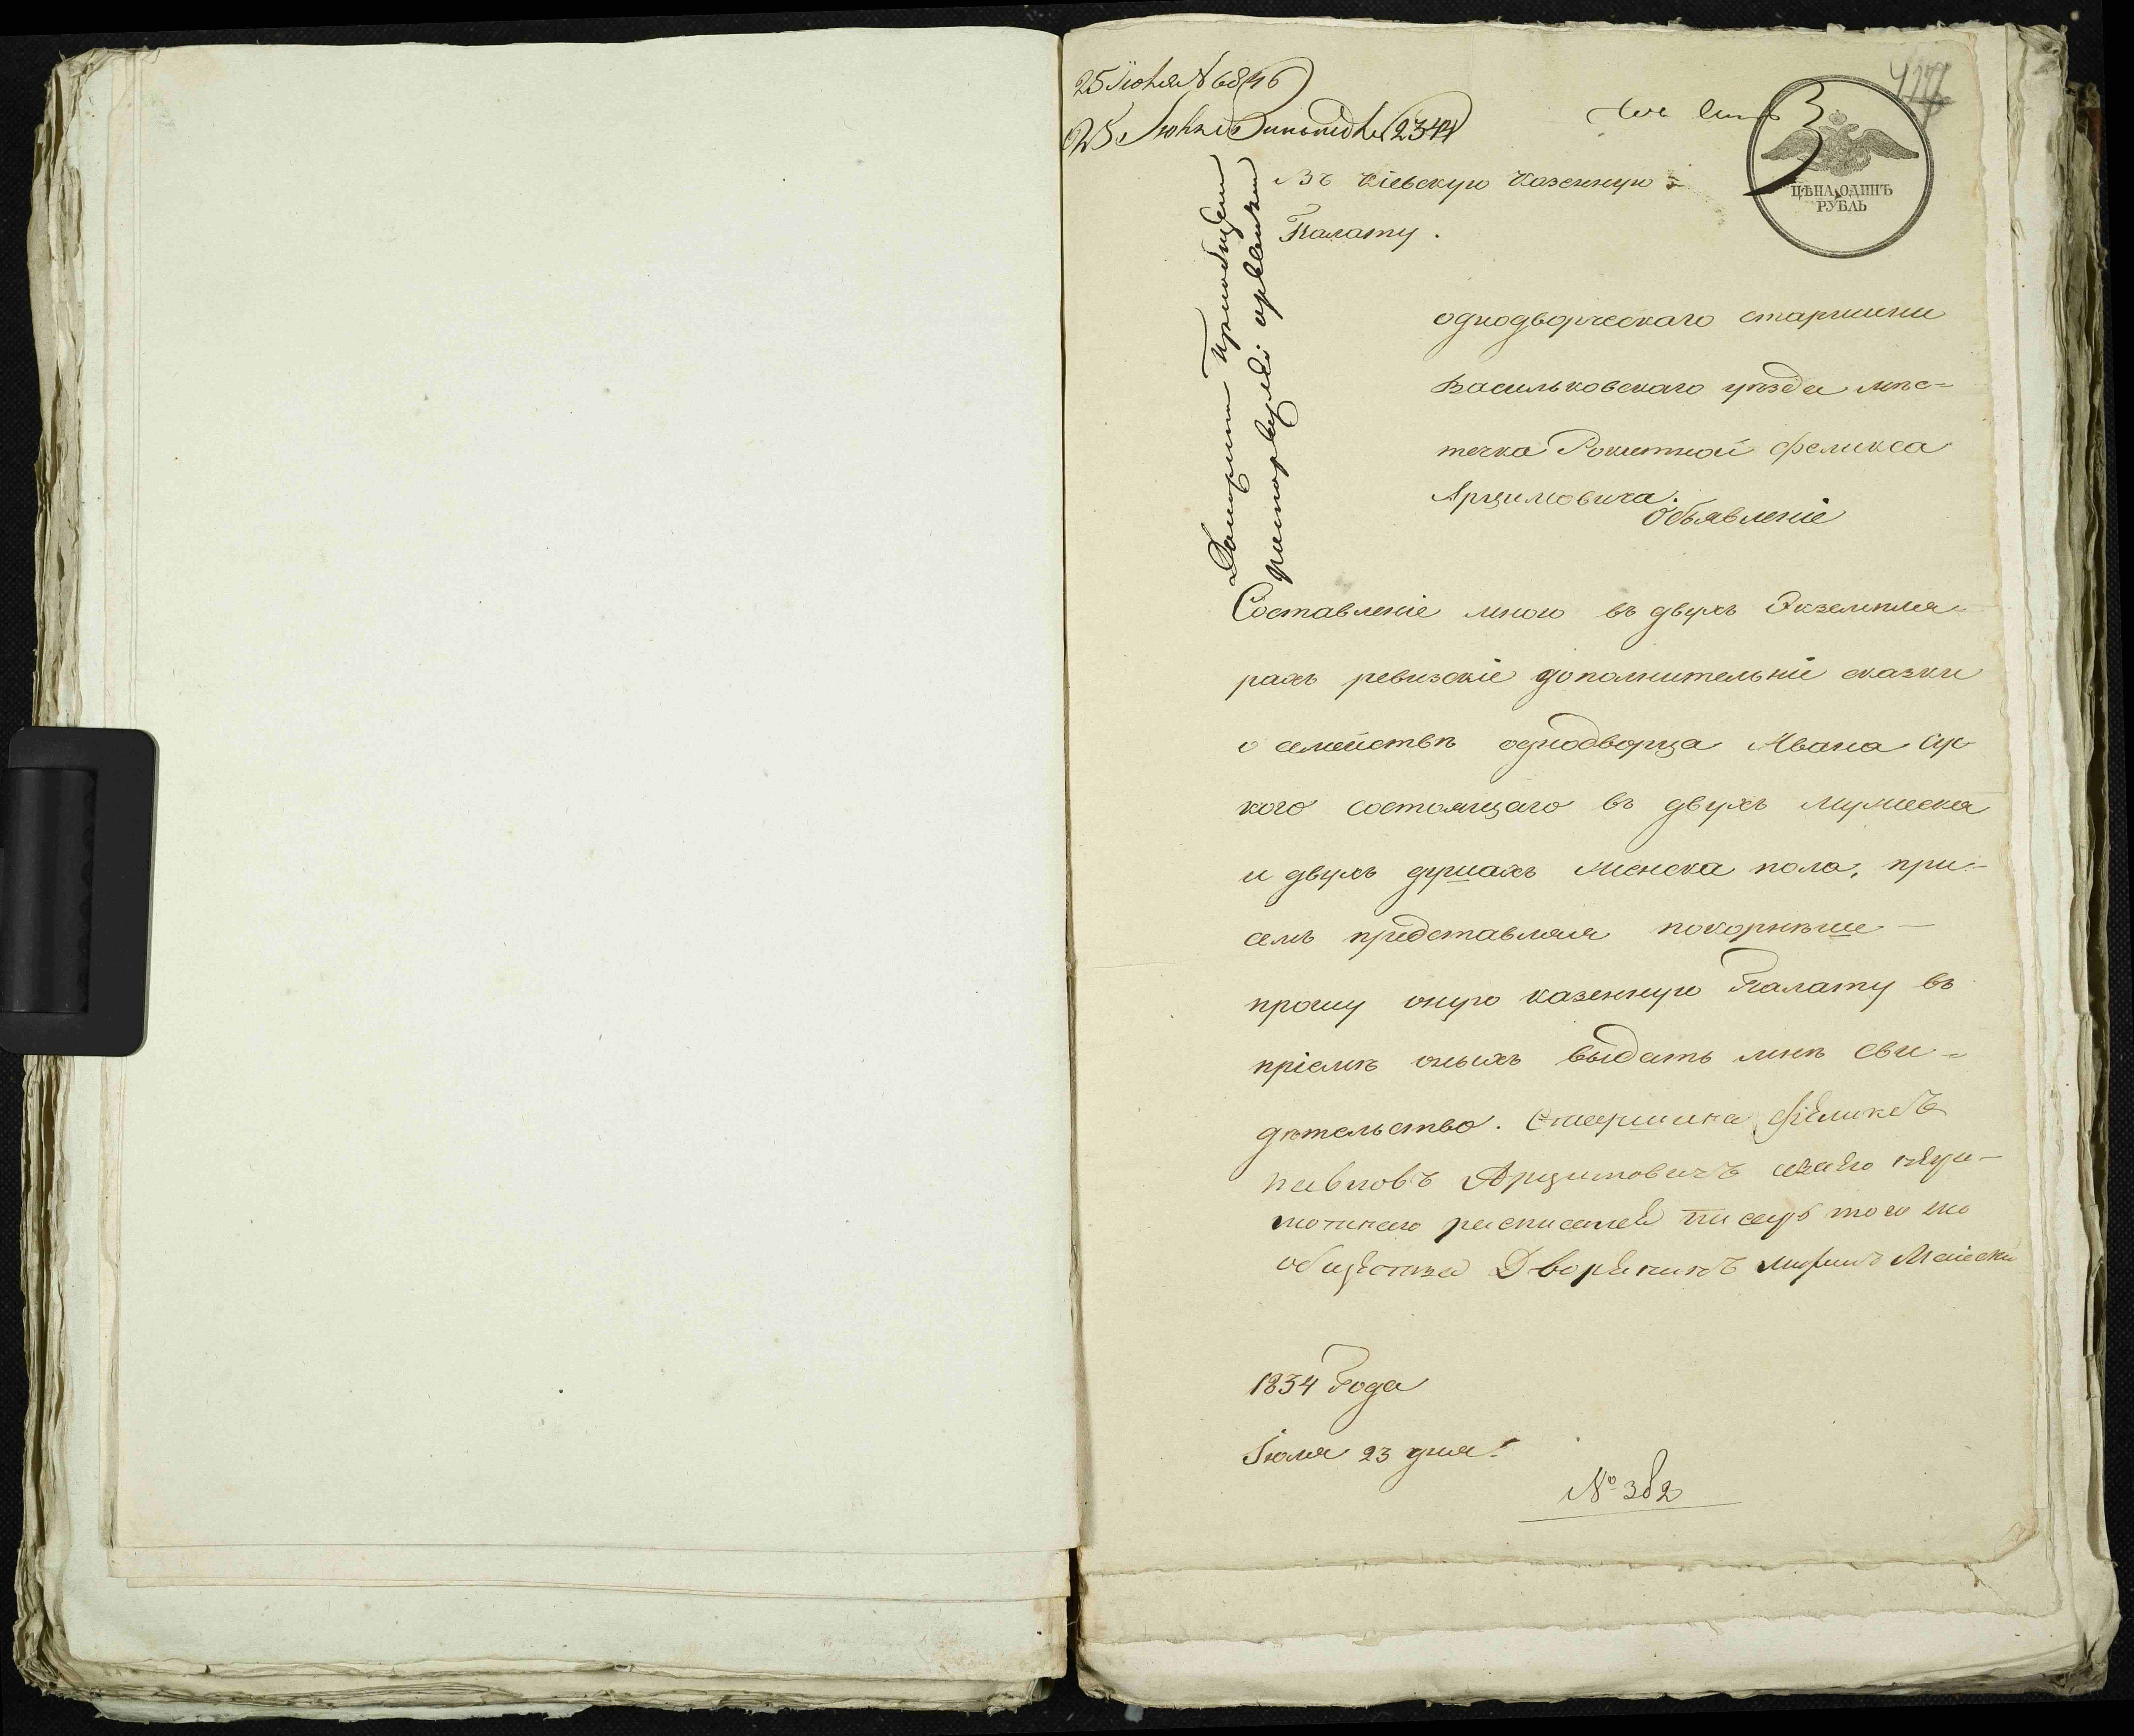 25 Июля № 6846
25 Июля 2344
477
ЦѢНА ОДИНЪ
РУБЛЬ
Въ Кіевскую Казенную
Палату.
однодворческаго старшини
Васильковскаго уѣзда мѣс-
течка Рокитной Феликса
Арцимовича.
Объявленіе
Составленіе мною въ двухъ Экземпля-
рахъ ревизскіе дополнительніе сказки
о семействѣ однодворца Ивана
кого состоящаго въ двухъ мужеска
и двухъ душахъ женска пола, при
семъ представляя покорнѣше
прошу оную казенную Палату въ
пріемѣ оныхъ выдать мнѣ сви-
дѣтельство. Старшина Феликсъ
павловъ Арцимовичъ
росписался писарь того же
общества Дворянинъ
1834 Года
Іюля 23 дня.
№ 382